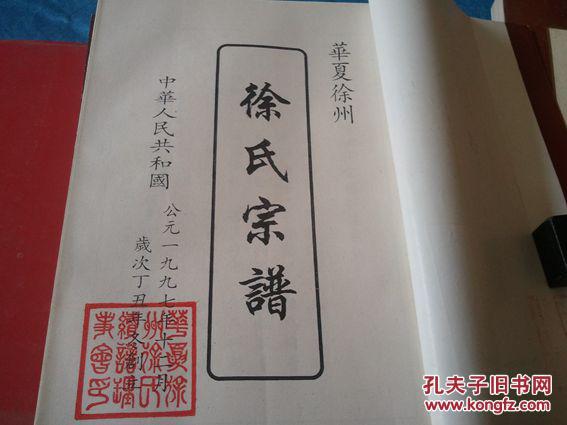 華夏徐州
徐氏宗譜
中華人民共和國
公元一九九七年十二月
歲次丁丑年冬
孔夫子旧书网
www.kongfz.com